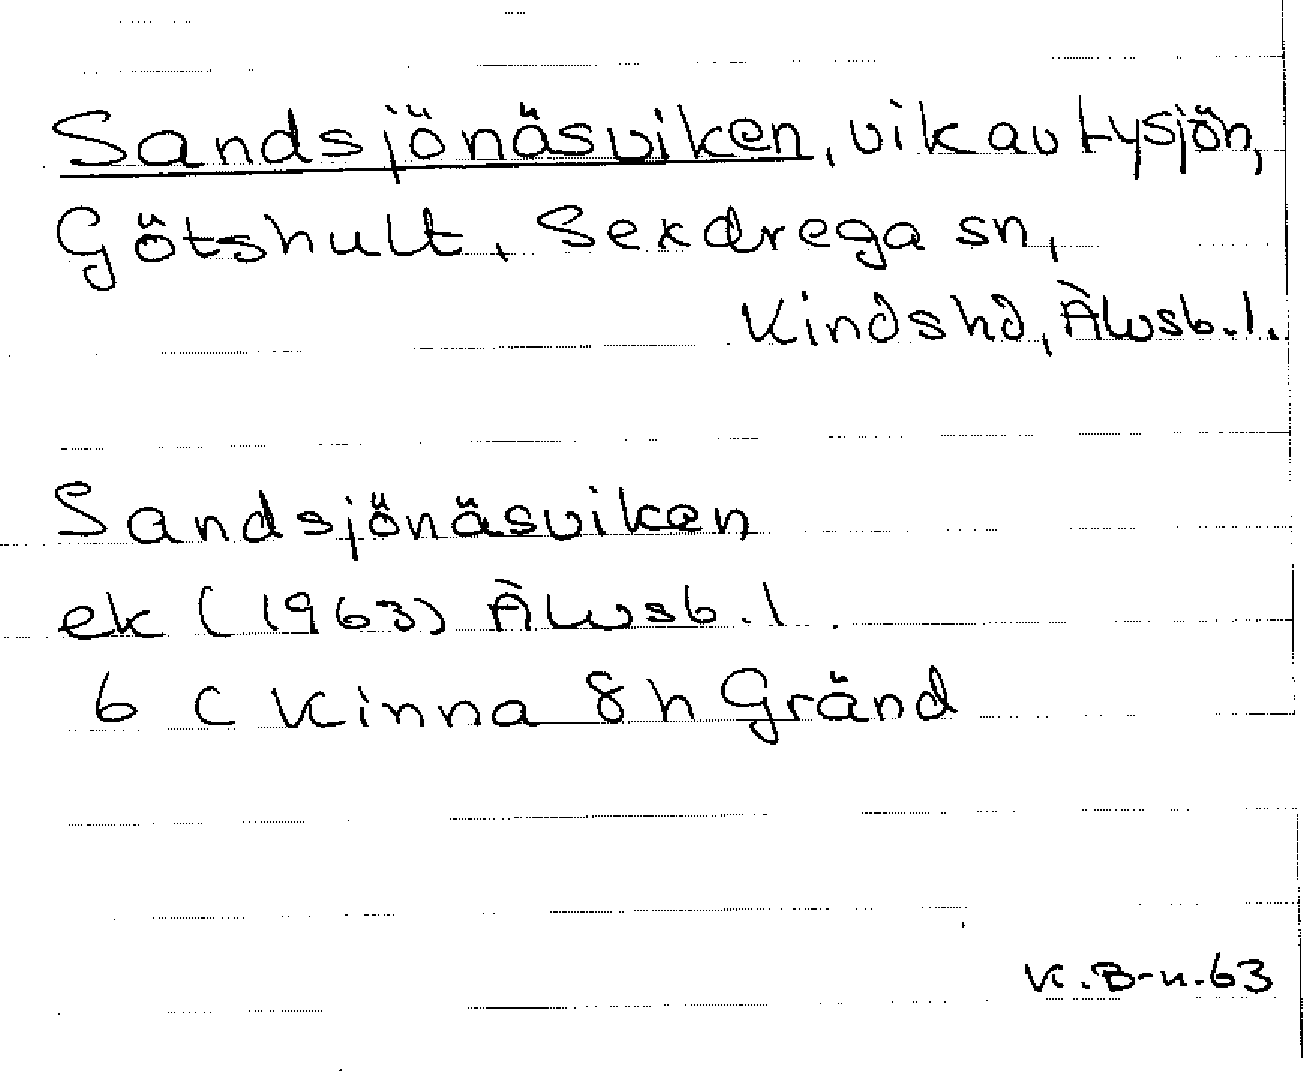 Sandsjönäsviken, vik av Lysjön,
Götshult, Sexdrega sn,
Kinds hd, Älvsb. l.
Sandsjönäsviken
ek (1963) Älvsb. l.
6 C Kinna 8 h Gränd
K. B-n. 63